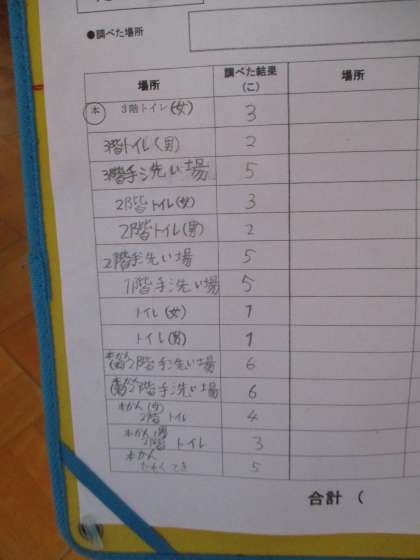 ●調べた場所
場所 調べた結果 (こ) 場所
本 3階トイレ(女) 3
3階トイレ(男) 2
3階手洗い場 5
2階トイレ(女) 3
2階トイレ(男) 2
2階手洗い場 5
1階手洗い場 5
トイレ(女) 1
トイレ(男) 1
2階手洗い場 6
2階手洗い場 6
本かん(女) 2階 トイレ 4
本かん(男) 2階 トイレ 3
本かん 5
合計 (